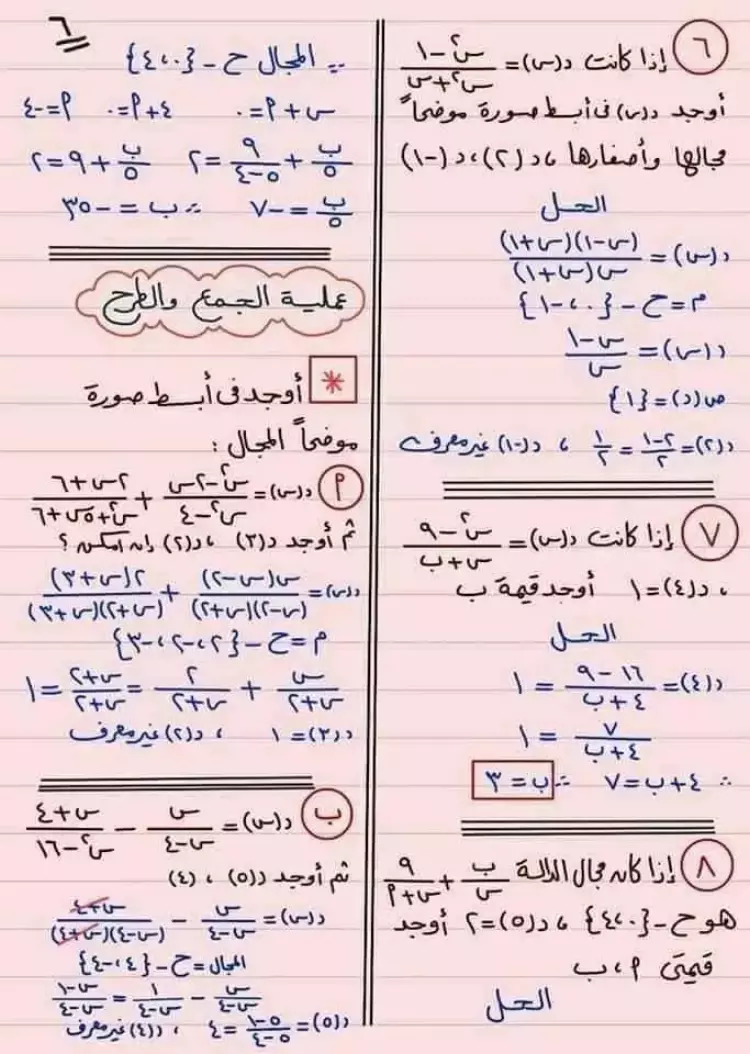 ٦
٦ إذا كانت د(س) = (س٢ - ١)/(س٢ + س)
أوجد د(س) فى أبسط صورة موضحاً
مجالها وأصفارها ، د(٢) ، د(-١)
الحل
د(س) = (س-١)(س+١)/س(س+١)
م = ح - {٠ ، -١}
د(س) = (س-١)/س
ص(د) = {١}
د(٢) = (٢-١)/٢ = ١/٢ ، د(-١) غير معرف
٧ إذا كانت د(س) = (س٢ - ٩)/(س + ب)
، د(٤) = ١ أوجد قيمة ب
الحل
د(٤) = (١٦ - ٩)/(٤ + ب) = ١
٧/(٤ + ب) = ١
∴ ٤ + ب = ٧ ∴ ب = ٣
٨ إذا كان مجال الدالة ب/س + ٩/(س + أ)
هو ح - {٠ ، ٤} ، د(٥) = ٢ أوجد
قيمتى أ ، ب
الحل
∵ المجال ح - {٠ ، ٤}
س + أ = ٠ ٤ + أ = ٠ أ = -٤
ب/٥ + ٩/(٥-٤) = ٢ ب/٥ + ٩ = ٢
ب/٥ = -٧ ∴ ب = -٣٥
عملية الجمع والطرح
* أوجد فى أبسط صورة
موضحاً المجال :
أ د(س) = (س٢ - ٢س)/(س٢ - ٤) + (٢س + ٦)/(س٢ + ٥س + ٦)
ثم أوجد د(٣) ، د(٢) إن امكن ؟
د(س) = س(س-٢)/(س-٢)(س+٢) + ٢(س+٣)/(س+٢)(س+٣)
م = ح - {٢ ، -٢ ، -٣}
س/(س+٢) + ٢/(س+٢) = (س+٢)/(س+٢) = ١
د(٣) = ١ ، د(٢) غير معرف
ب د(س) = س/(س-٤) - (س+٤)/(س٢ - ١٦)
ثم أوجد د(٥) ، (٤)
د(س) = س/(س-٤) - (س+٤)/(س-٤)(س+٤)
المجال = ح - {٤ ، -٤}
س/(س-٤) - ١/(س-٤) = (س-١)/(س-٤)
د(٥) = (٥-١)/(٥-٤) = ٤ ، د(٤) غير معرف